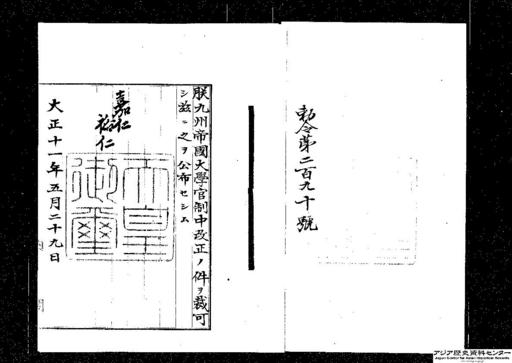 勅令第二百九十號
朕九州帝國大學官制中改正ノ件ヲ裁可
シ茲ニ之ヲ公布セシム
嘉仁
裕仁
天皇
御璽
大正十一年五月二十九日
アジア歴史資料センター
Japan Center for Asian Historical Records